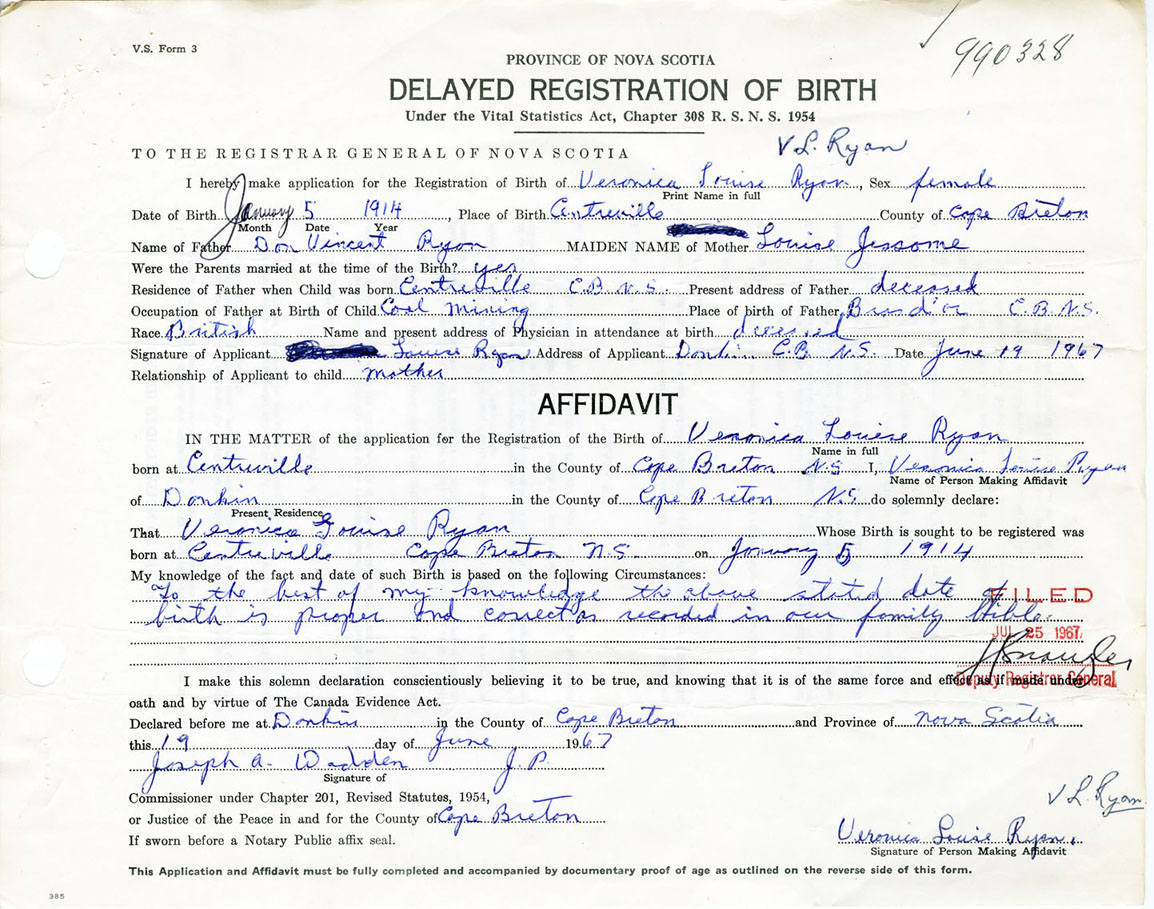 V.S. Form 3
990328
PROVINCE OF NOVA SCOTIA
DELAYED REGISTRATION OF BIRTH
Under the Vital Statistics Act, Chapter 308 R. S. N. S. 1954
V L. Ryan
TO THE REGISTRAR GENERAL OF NOVA SCOTIA
I hereby make application for the Registration of Birth of Veronica Louise Ryan, Sex female
Print Name in full
Date of Birth January 5 1914, Place of Birth Centreville County of Cape Breton
Month Date Year
Name of Father Don Vincent Ryan MAIDEN NAME of Mother Louise Jessome
Were the Parents married at the time of the Birth? yes
Residence of Father when Child was born Centreville C.B. N.S. Present address of Father deceased
Occupation of Father at Birth of Child Coal mining Place of birth of Father Bras d'or C.B. N.S.
Race British Name and present address of Physician in attendance at birth deceased
Signature of Applicant Louise Ryan Address of Applicant Donkin C.B. N.S. Date June 19 1967
Relationship of Applicant to child mother
AFFIDAVIT
IN THE MATTER of the application for the Registration of the Birth of Veronica Louise Ryan
Name in full
born at Centreville in the County of Cape Breton N.S I, Veronica Louise Ryan
Name of Person Making Affidavit
of Donkin in the County of Cape Breton N.S. do solemnly declare:
Present Residence
That Veronica Louise Ryan Whose Birth is sought to be registered was
born at Centreville Cape Breton N S on January 5 1914
My knowledge of the fact and date of such Birth is based on the following Circumstances:
To the best of my knowledge the above stated date of
FILED
birth is proper and correct as recorded in our family Bible.
JUL 25 1967
Deputy Registrar General
I make this solemn declaration conscientiously believing it to be true, and knowing that it is of the same force and effect as if made under
oath and by virtue of The Canada Evidence Act.
Declared before me at Donkin in the County of Cape Breton and Province of Nova Scotia
this 19 day of June 1967
Joseph A. Wadden J.P.
Signature of
Commissioner under Chapter 201, Revised Statutes, 1954,
or Justice of the Peace in and for the County of Cape Breton
V L. Ryan
If sworn before a Notary Public affix seal.
Veronica Louise Ryan.
Signature of Person Making Affidavit
This Application and Affidavit must be fully completed and accompanied by documentary proof of age as outlined on the reverse side of this form.
385